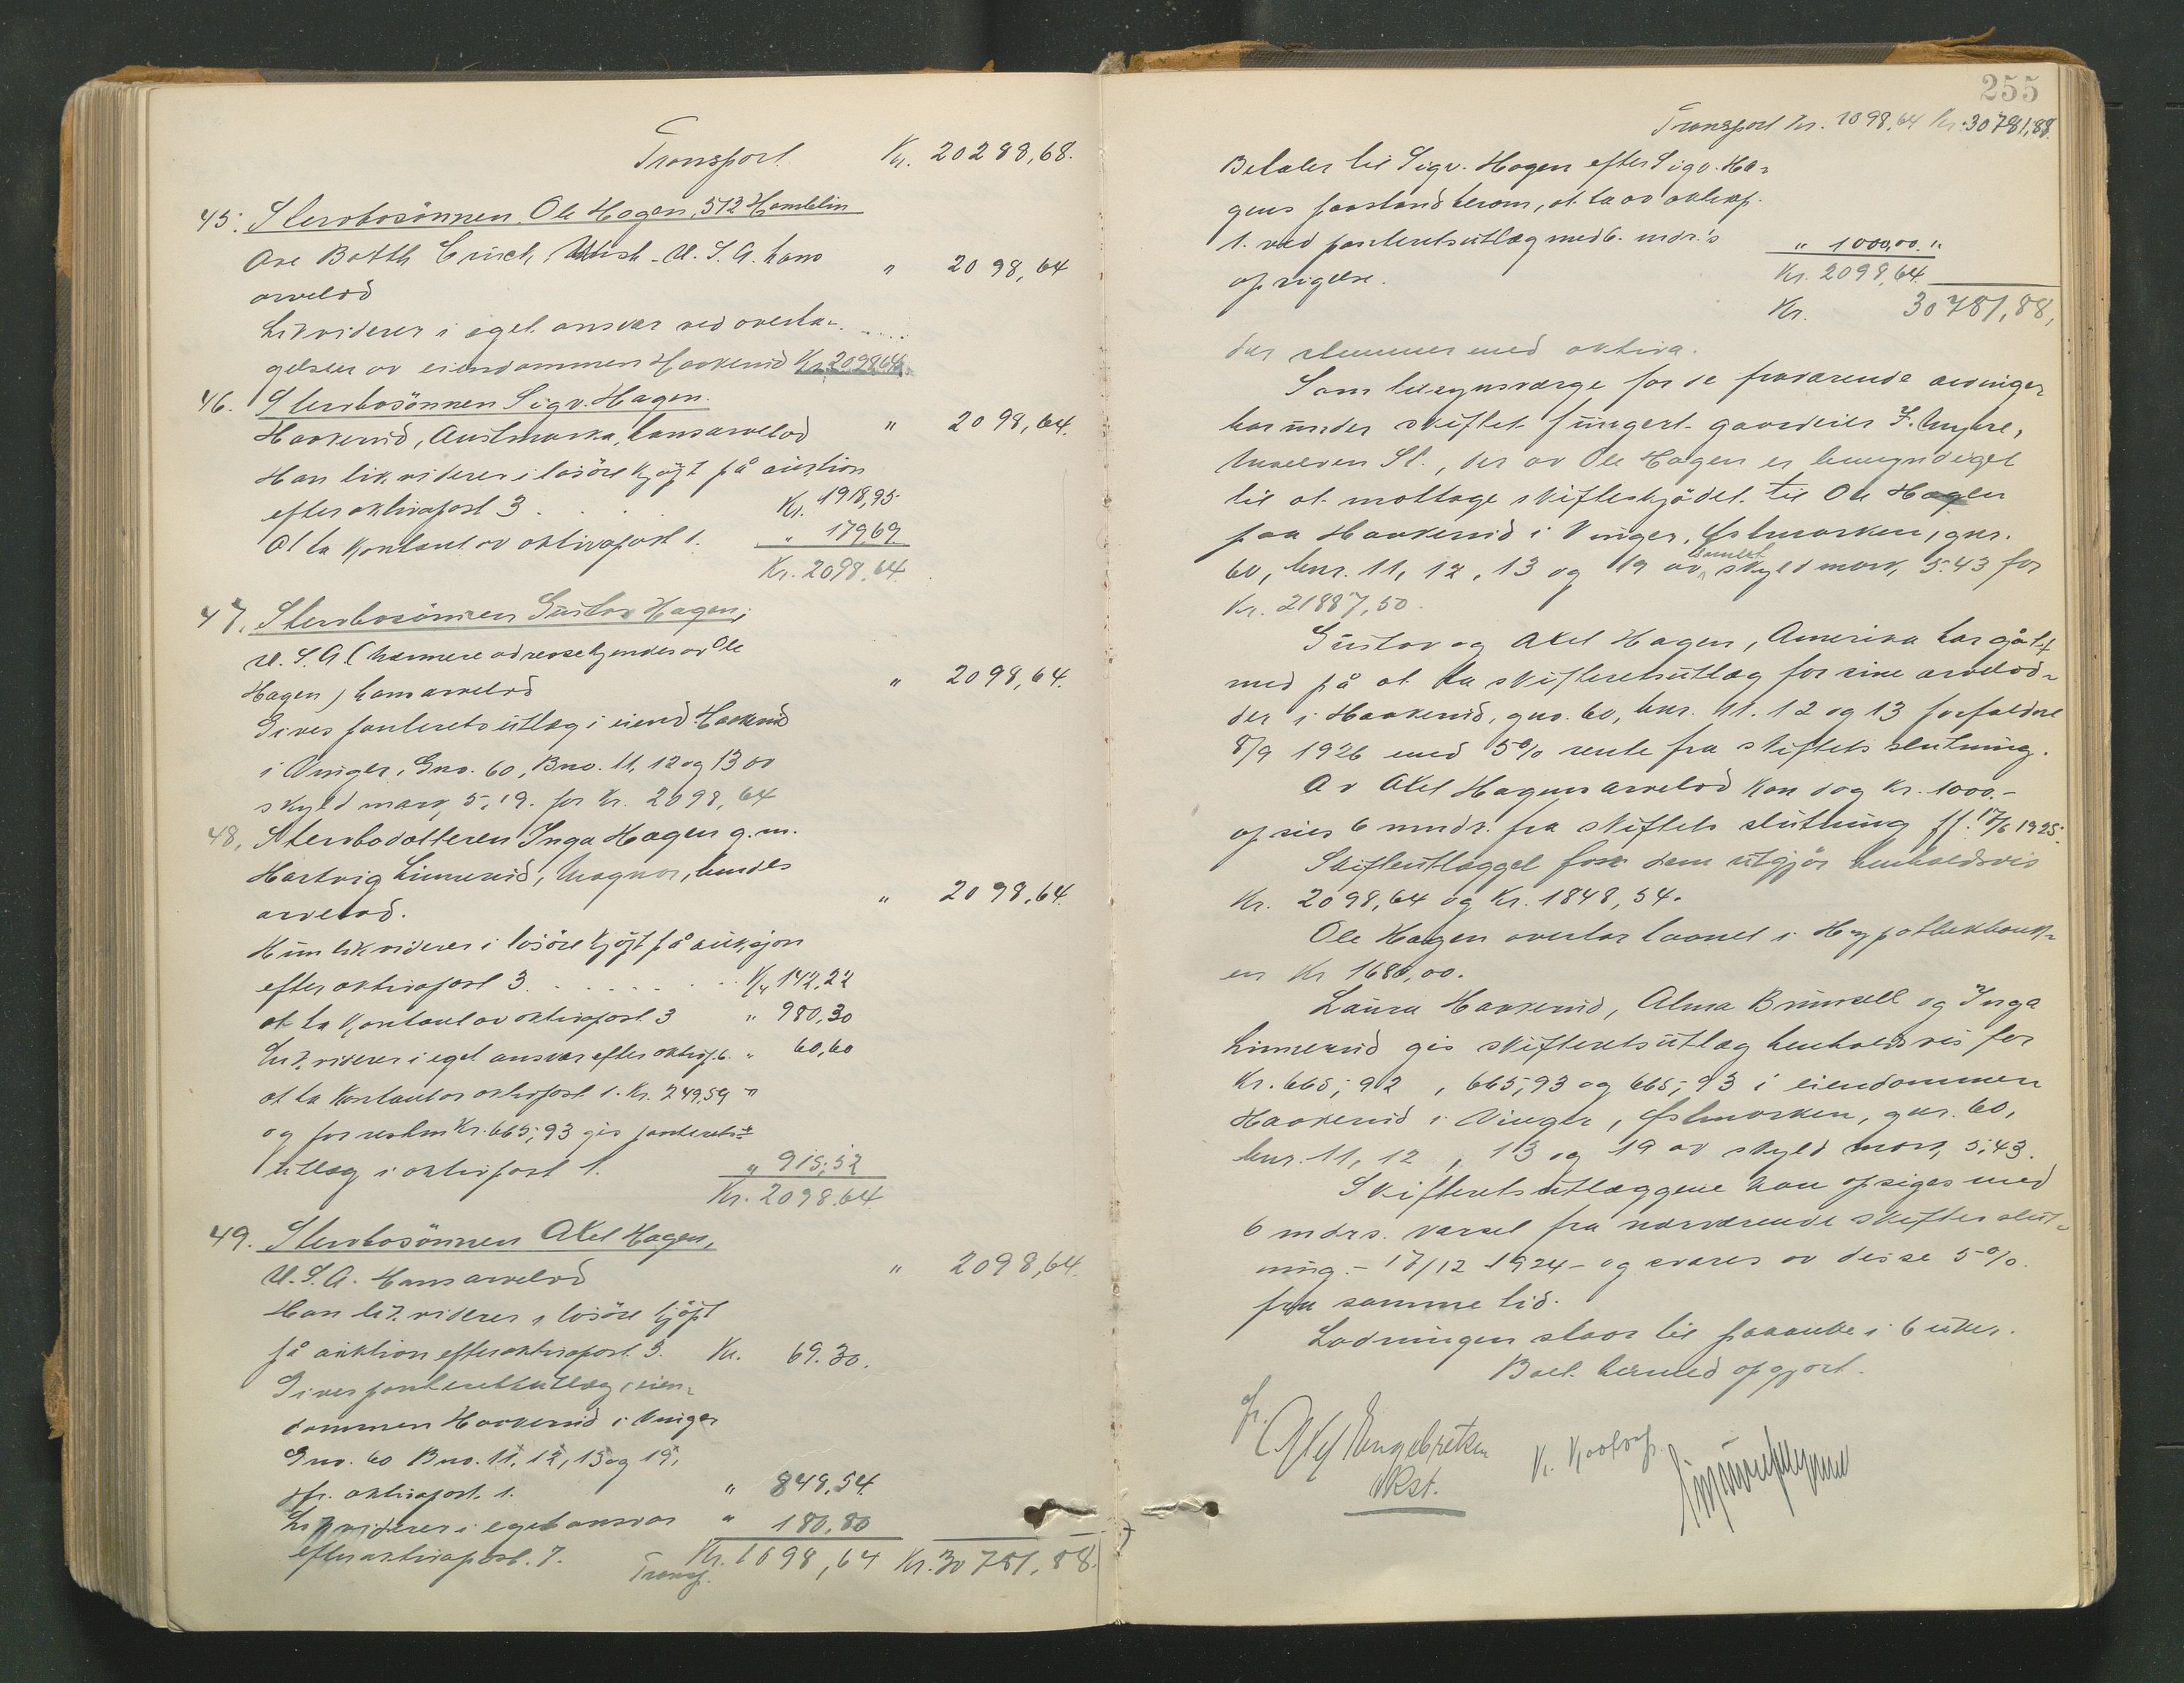 Transport. Kr. 20288,68.
45. Stervbosønnen Ole Hagen, 512 Hamblin
Ave Battle Creeck, Mich. U.S.A. hans
arvelod " 2098,64
Likviderer i eget ansvar ved overta-
gelsen av eiendommen Haakerud Kr. 2098,64
46. Stervbosønnen Sigv. Hagen.
Haakerud, Austmarka, hans arvelod " 2098,64.
Han likviderer i løsöre kjöpt på auktion
efter aktivapost 3 . . . Kr. 1918,95
At ta kontant av aktivapost 1. " 179,69
Kr. 2098,64.
47. Stervbosönnen Gustav Hagen,
U.S.A. (nærmere adresse kjendes av Ole
Hagen) hans arvelod " 2098,64.
Gives panteretsutlæg i eiend. Haakerud
i Vinger, Gno. 60, Bno. 11, 12 og 13 av
skyld mark 5,19. for Kr. 2098,64
48. Stervbodatteren Inga Hagen g.m.
Hartvig Linnerud, Magnor, hendes
arvelod. " 2098,64.
Hun likviderer i løsöre kjöpt på auksjon
efter aktivapost 3. . . . . . . Kr. 142,22
at ta kontant av aktivapost 3 " 980,30
Likviderer i eget ansvar efter aktivp. 6. " 60,60
at ta kontant av aktivpost 1. Kr. 249,59
og for resten Kr. 665,93 gis panterets-
utlæg i aktivpost 1. " 915,52
Kr. 2098,64.
49. Stervbosønnen Axel Hagen,
U.S.A. Hans arvelod " 2098,64.
Han likviderer i løsöre kjöpt
på auktion efter aktivapost 3. Kr. 69.30.
Gives panteretsutlæg i eien-
dommen Haakerud i Vinger
Gno. 60 Bno. 11, 12, 13 og 19,
jfr. aktivapost. 1. " 848,54
Likviderer i eget ansvar " 180,80
efter aktivapost. 7. Transp. Kr. 1098,64 Kr. 30781,88.
255
Transport Kr. 1098,64 Kr. 30781,88.
Betaler til Sigv. Hagen efter Sigv. Ha-
gens paastand herom, at ta av aktivap.
1. ved panteretsutlæg med 6. mdr.'s " 1000,00. "
opsigelse. Kr. 2098,64.
Kr. 30781,88,
der stemmer med aktiva.
Som tilsynsværge for de fraværende arvinger
har under skiftet fungert gaardeier F. Myhre,
St., der av Ole Hagen er bemyndiget
til at mottage skifteskjödet til Ole Hagen
paa Haakerud i Vinger, Østmarken, gnr.
60, bnr. 11, 12, 13 og 19 av samlet skyld mark 5.43 for
Kr. 21887,50.
Gustav og Axel Hagen, Amerika har gått
med på at ta skifteretsutlæg for sine arvelod-
der i Haakerud, gno. 60, bnr. 11. 12 og 13 forfaldne
8/9 1926 med 5% rente fra skiftets slutning.
Av Axel Hagens arvelod kan dog Kr. 1000.-
opsies 6 mndr. fra skiftets slutning ff. 17/6 1925.
Skifteutlægget for dem utgjör henholdsvis
Kr. 2098,64 og Kr. 1848,54.
Ole Hagen overtar laanet i Hypotekbank-
en Kr 1680,00.
Laura Haakerud, Alma Brunsell og Inga
Linnerud gis skifteretsutlæg henholdsvis for
Kr. 665,92, 665,93 og 665,93 i eiendommen
Haakerud i Vinger, Østmarken, gnr. 60,
bnr. 11, 12, 13 og 19 av skyld mark 5,43.
Skifteretsutlæggene kan opsiges med
6 mdrs. varsel fra nærværende skiftes slut-
ning - 17/12 1924 - og svares av disse 5%
fra samme tid.
Lodningen staar til paaanke i 6 uker.
Boet hermed opgjort.
Olaf Engebretsen